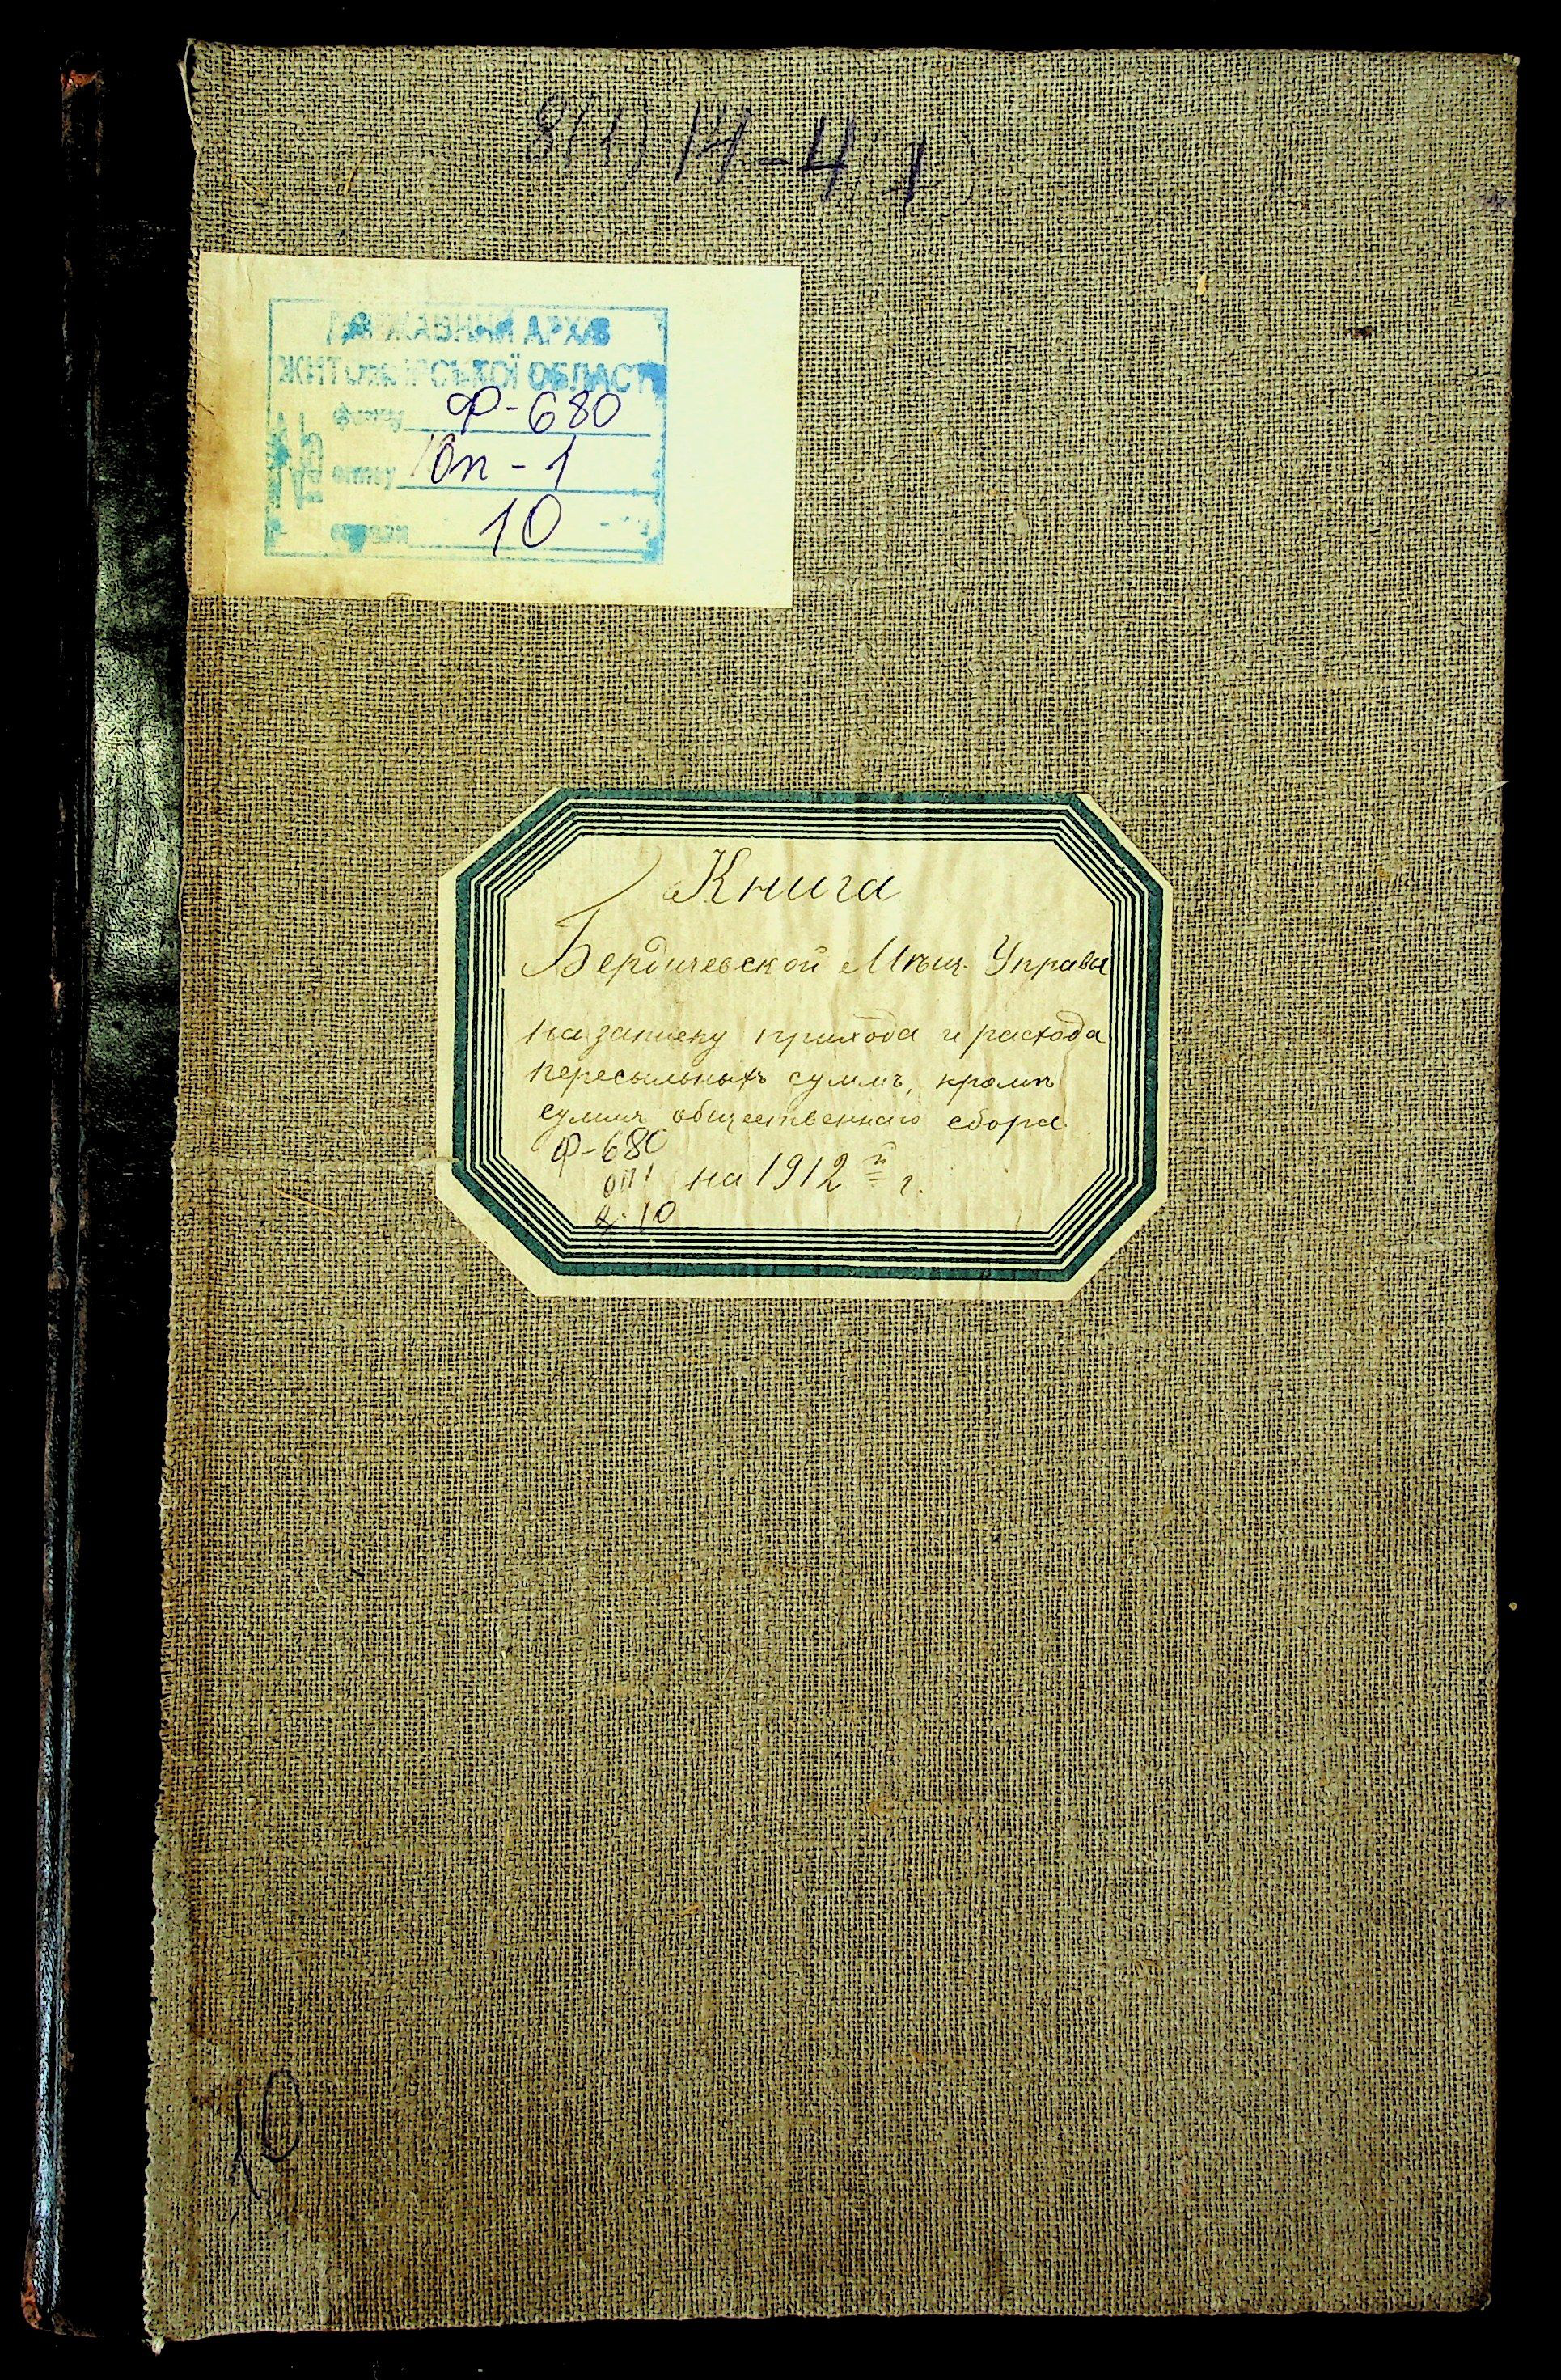 ДЕРЖАВНИЙ АРХІВ
ЖИТОМИРСЬКОЇ ОБЛАСТІ
фонд Ф-680
опис Оп-1
10
Книга
Бердичевской Мѣщ. Управы
на записку прихода и расхода
пересыльныхъ суммъ, кромѣ
суммъ общественнаго сбора
Ф-680
оп1 на 1912 й г.
д. 10
10